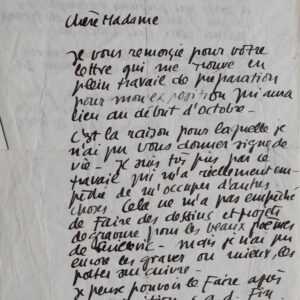 Chère Madame
Je vous remercie pour votre
lettre qui me trouve en
plein travail de préparation
pour mon exposition qui aura
lieu au début d'octobre -
C'est la raison pour laquelle je
n'ai pu vous donner signe de
vie - Je suis très pris par ce
travail qui m'a réellement em-
pêché de m'occuper d'autres
choses. Cela ne m'a pas empêché
de faire des dessins et projets
de gravure pour les beaux poèmes
de - mais je n'ai pu
encore les graver ou mieux, les
porter au cuivre -
Je pense pouvoir le faire après